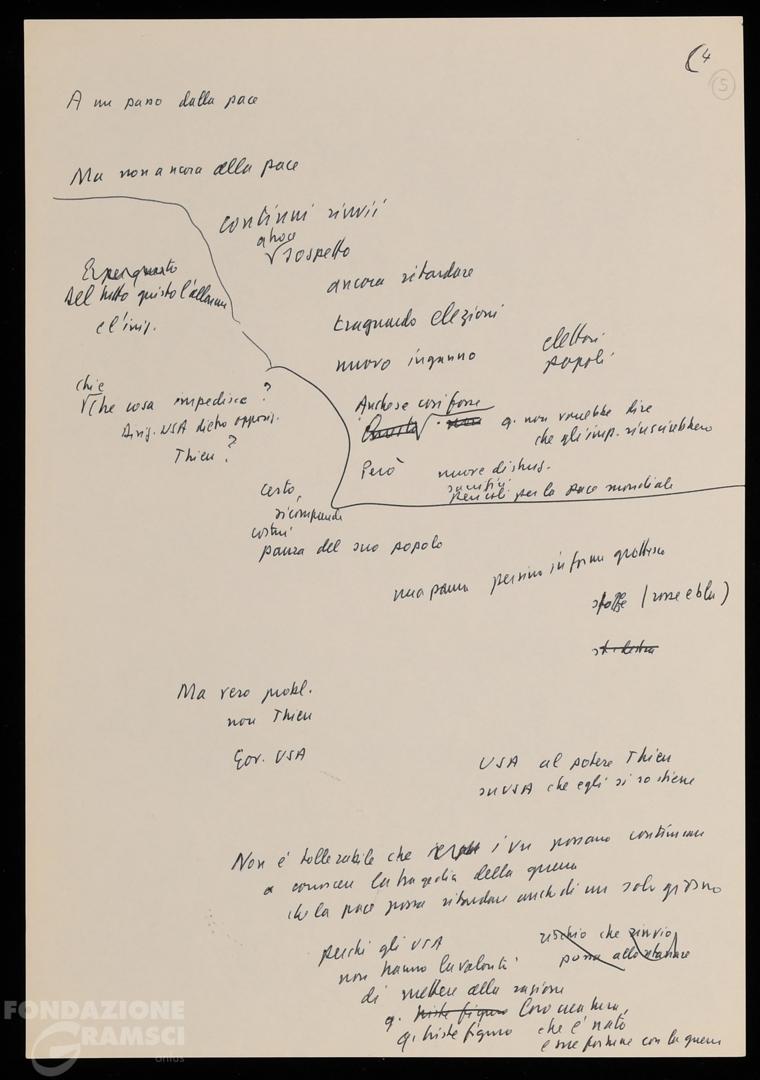 4
5
A un passo dalla pace
Ma non ancora alla pace
continui rinvii
atroce
sospetto
ancora ritardare
traguardo elezioni
nuovo inganno
elettori
popoli
E per questo
del tutto giusto l'allarme
e l'iniz.
chi e
che cosa impedisce?
Dirig. USA dietro opposiz.
Thieu?
Anche se così fosse
q. non vorrebbe dire
che gli imp. riuscirebbero
Però nuove distruz.
sacrifici
pericoli per la pace mondiale
certo,
ricompare
costui
paura del suo popolo
una paura persino in forme grottesche
stoffe (rosse e blu)
Ma vero probl.
non Thieu
Gov. USA
USA al potere Thieu
su USA che egli si sostiene
Non è tollerabile che i vn possano continuare
a conoscere la tragedia della guerra
che la pace possa ritardare anche di un solo giorno
perché gli USA
non hanno la volontà
di mettere alla ragione
q. triste figuro loro creatura,
q. triste figuro che è nato
e sue fortune con la guerra
rischio che rinvio
possa allontanare
FONDAZIONE
GRAMSCI
onlus